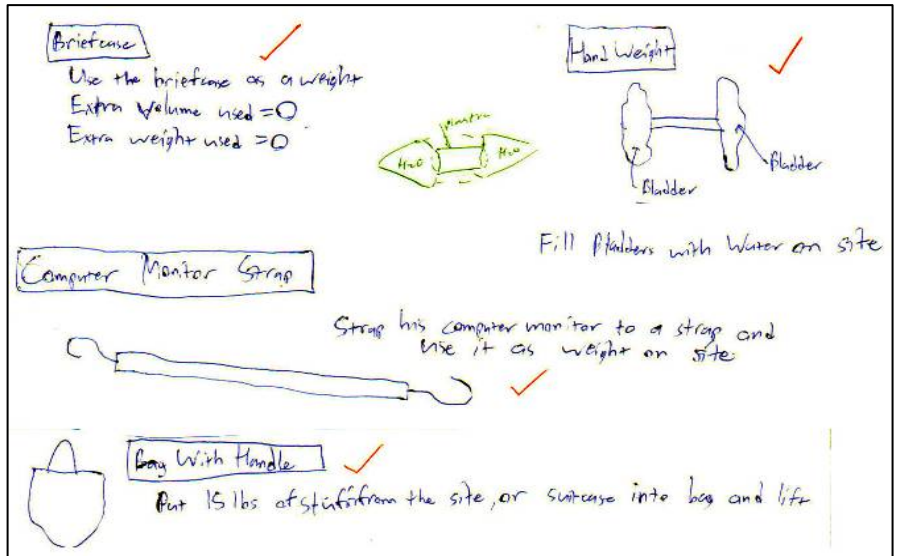 Briefcase
Use the briefcase as a weight
Extra Volume used = 0
Extra weight used = 0
Hand Weight
H2O
H2O
Bladder
Bladder
Fill Bladders with Water on site
Computer Monitor Strap
Strap his computer monitor to a strap and
use it as weight on site
Bag With Handle
Put 15 lbs of stuff from the site, or suitcase into bag and lift